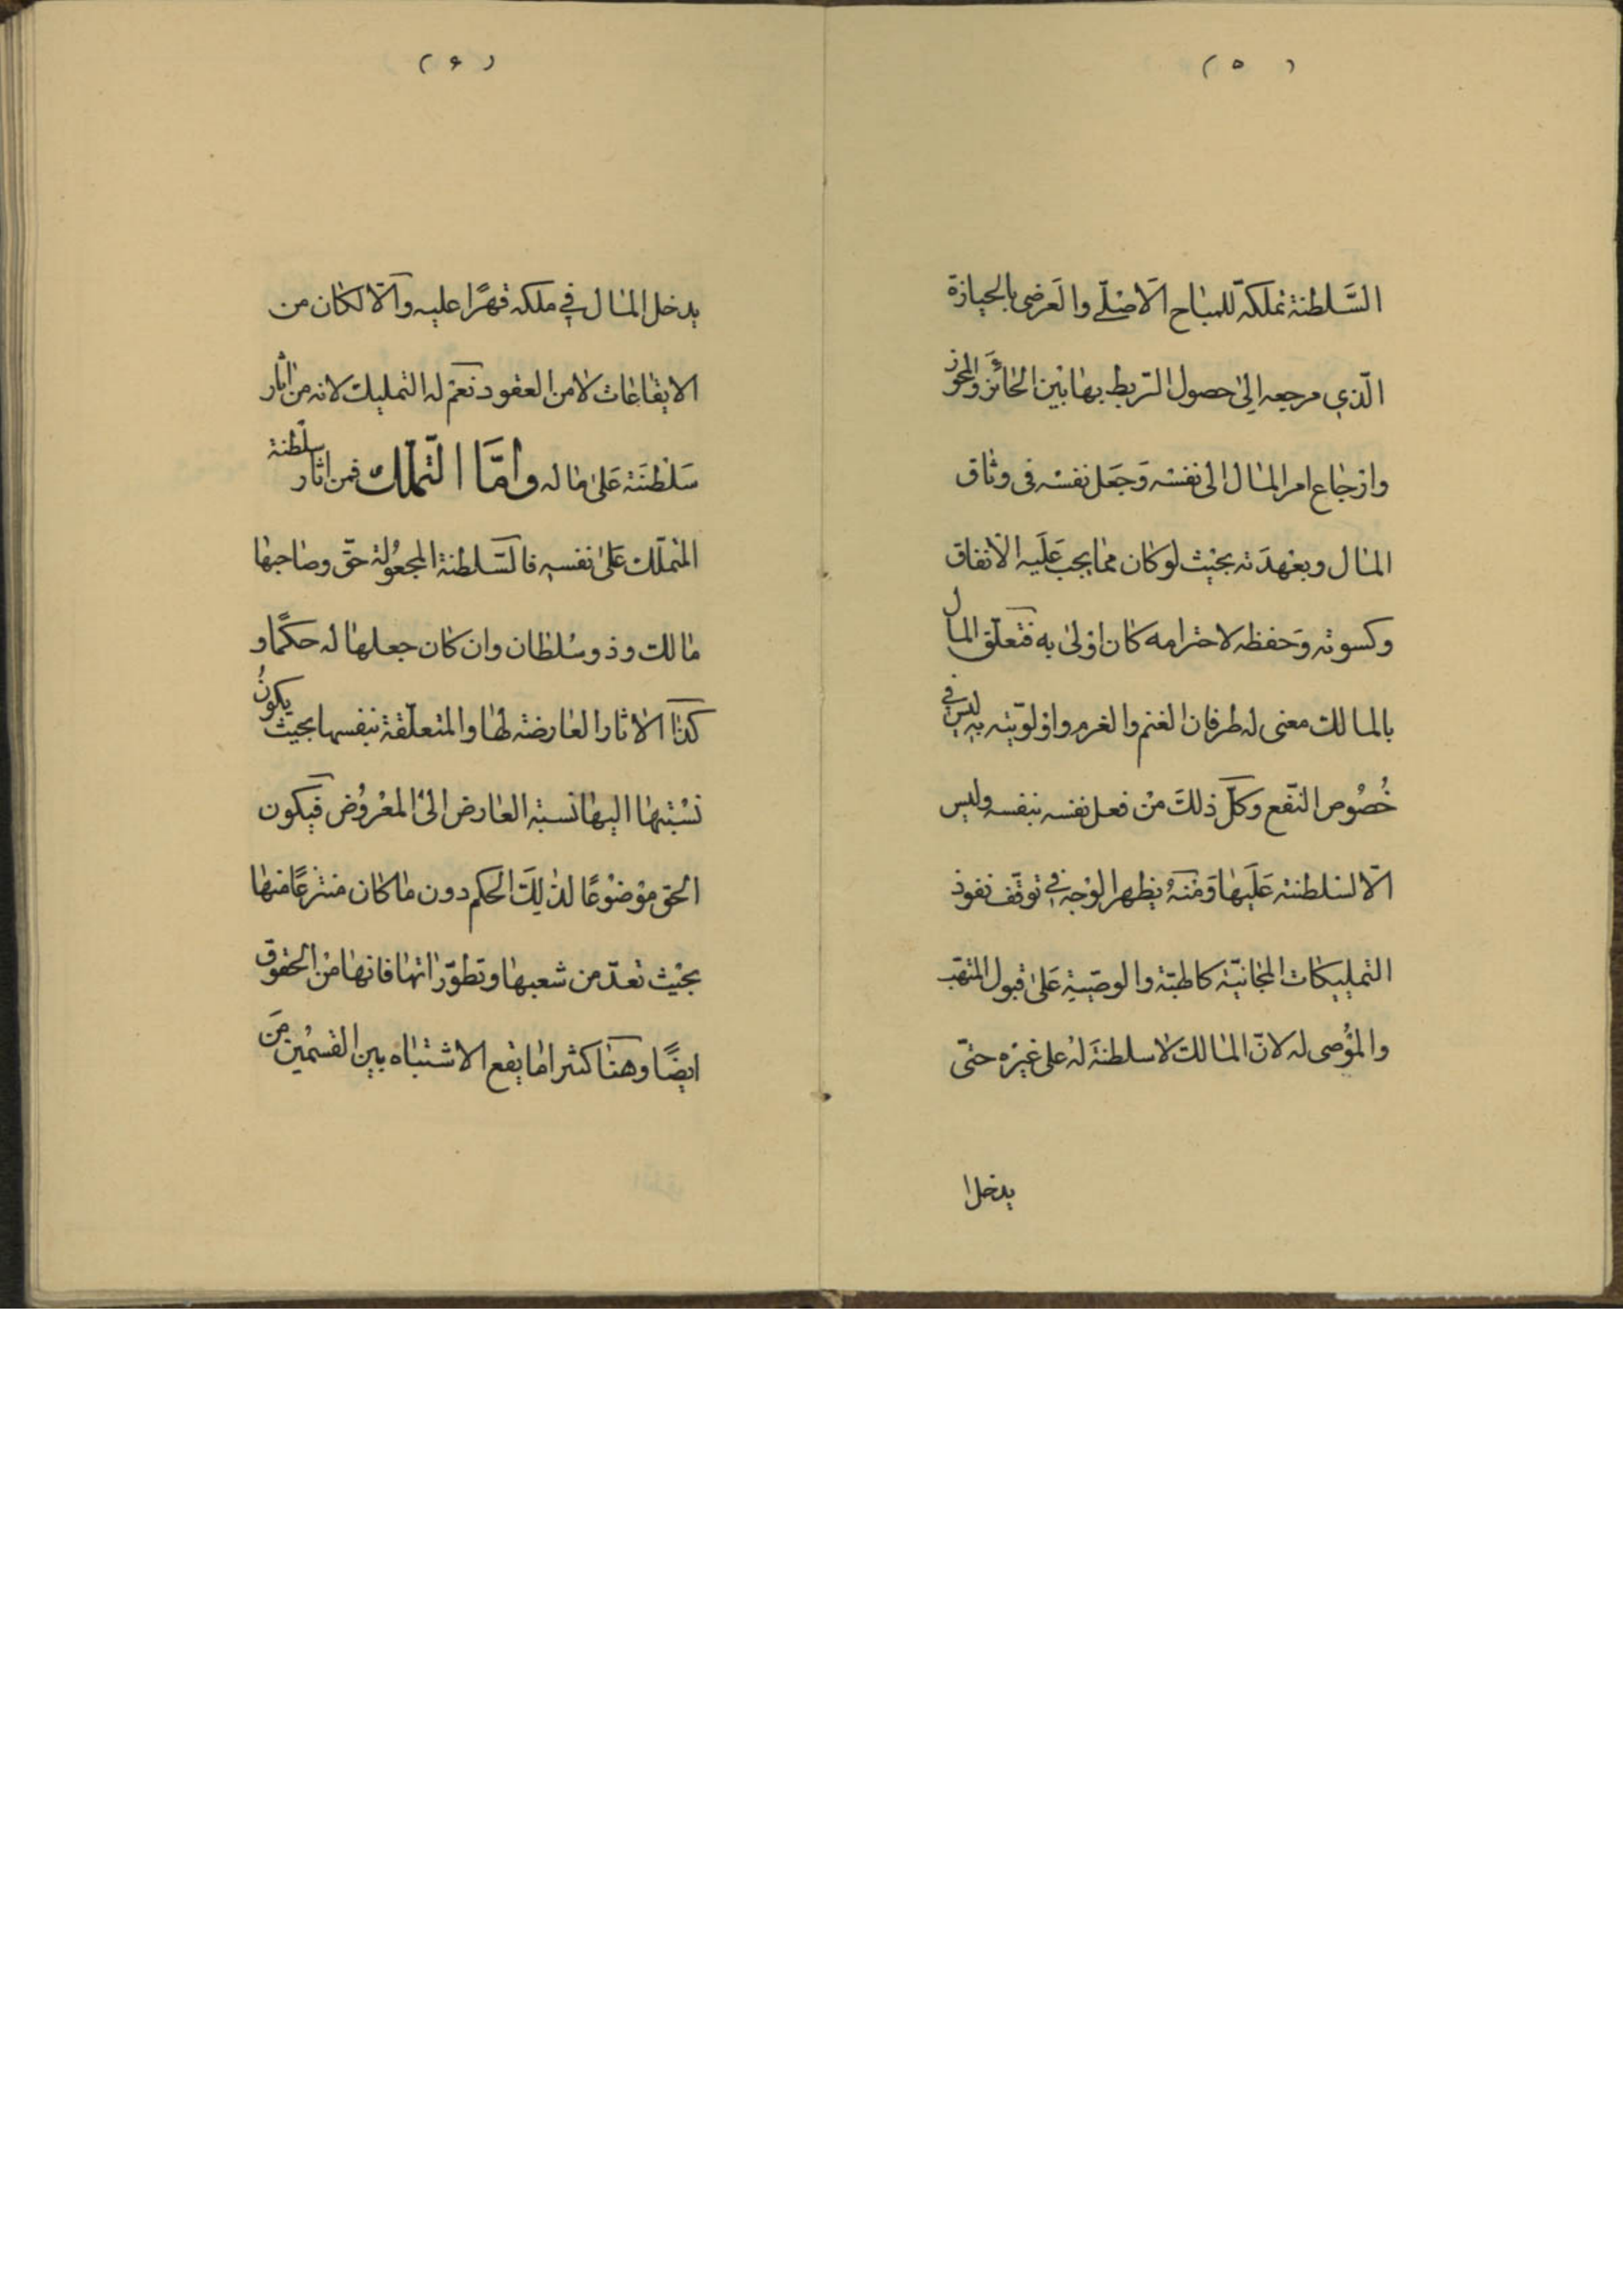 ( ۵ )
السَّلطنة تملكه للمباح الاصلي والعرضي بالحيازة
الّذي مرجعه الى حصول الرّبط بها بين الحائز والمحوز
وارجاع امر المال الى نفسه وَجَعل نفسه في وثاق
المال وبعهدَته بحيث لو كان ممّا يجب عَلَيه الانفاق
وكسوته وَحفظه لاحترامه كان اولى به فتعلّق المال
بالمالك معنى له طرفان الغنم والغرم واولويّته به ليس في
خُصُوص النّفع وكلّ ذلكَ من فعل نفسه بنفسه وليس
الّا لسلطنته عَلَيها وَمنه يظهر الوجه في توقّف نفوذ
التمليكات المجانيّة كالهبة والوصيّة عَلى قبول المتهب
والمؤصى له لانّ المالك لا سلطنةَ له على غيره حتّى
يدخل
( ۶ )
يدخل المال في ملكه قهرًا عليه والّا لكان من
الايقاعات لا من العقود نعم له التمليك لانه من اثار
سَلطنَته عَلى ماله وامَّا التملّك فمن اثار سلطنة
المتملّك عَلى نفسه فالسّلطنة المجعُولة حقّ وصاحبها
مالك وذو سُلطان وان كان جعلها له حكمًا و
كذا الاثار العارضة لها والمتعلّقة بنفسها بحيث يكونُ
نسْبتها اليها نسبة العارض الى المعْرُوض فيكون
الحق موْضوْعًا لذلِكَ الحكم دون ما كان منتزعًا منها
بحيْث تعدّ من شعبها وتطوّراتها فانها من الحقوق
ايضًا وهنا كثيرا ما يقع الاشتباه بين القسمين من